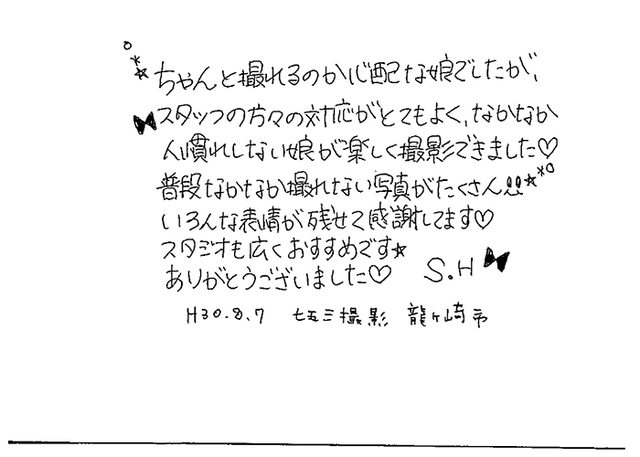 ちゃんと撮れるのか心配な娘でしたが、
スタッフの方々の対応がとてもよく、なかなか
人慣れしない娘が楽しく撮影できました♡
普段なかなか撮れない写真がたくさん!!☆
いろんな表情が残せて感謝してます♡
スタジオも広くおすすめです☆
ありがとうございました♡ S.H
H30.8.7 七五三撮影 龍ヶ崎市